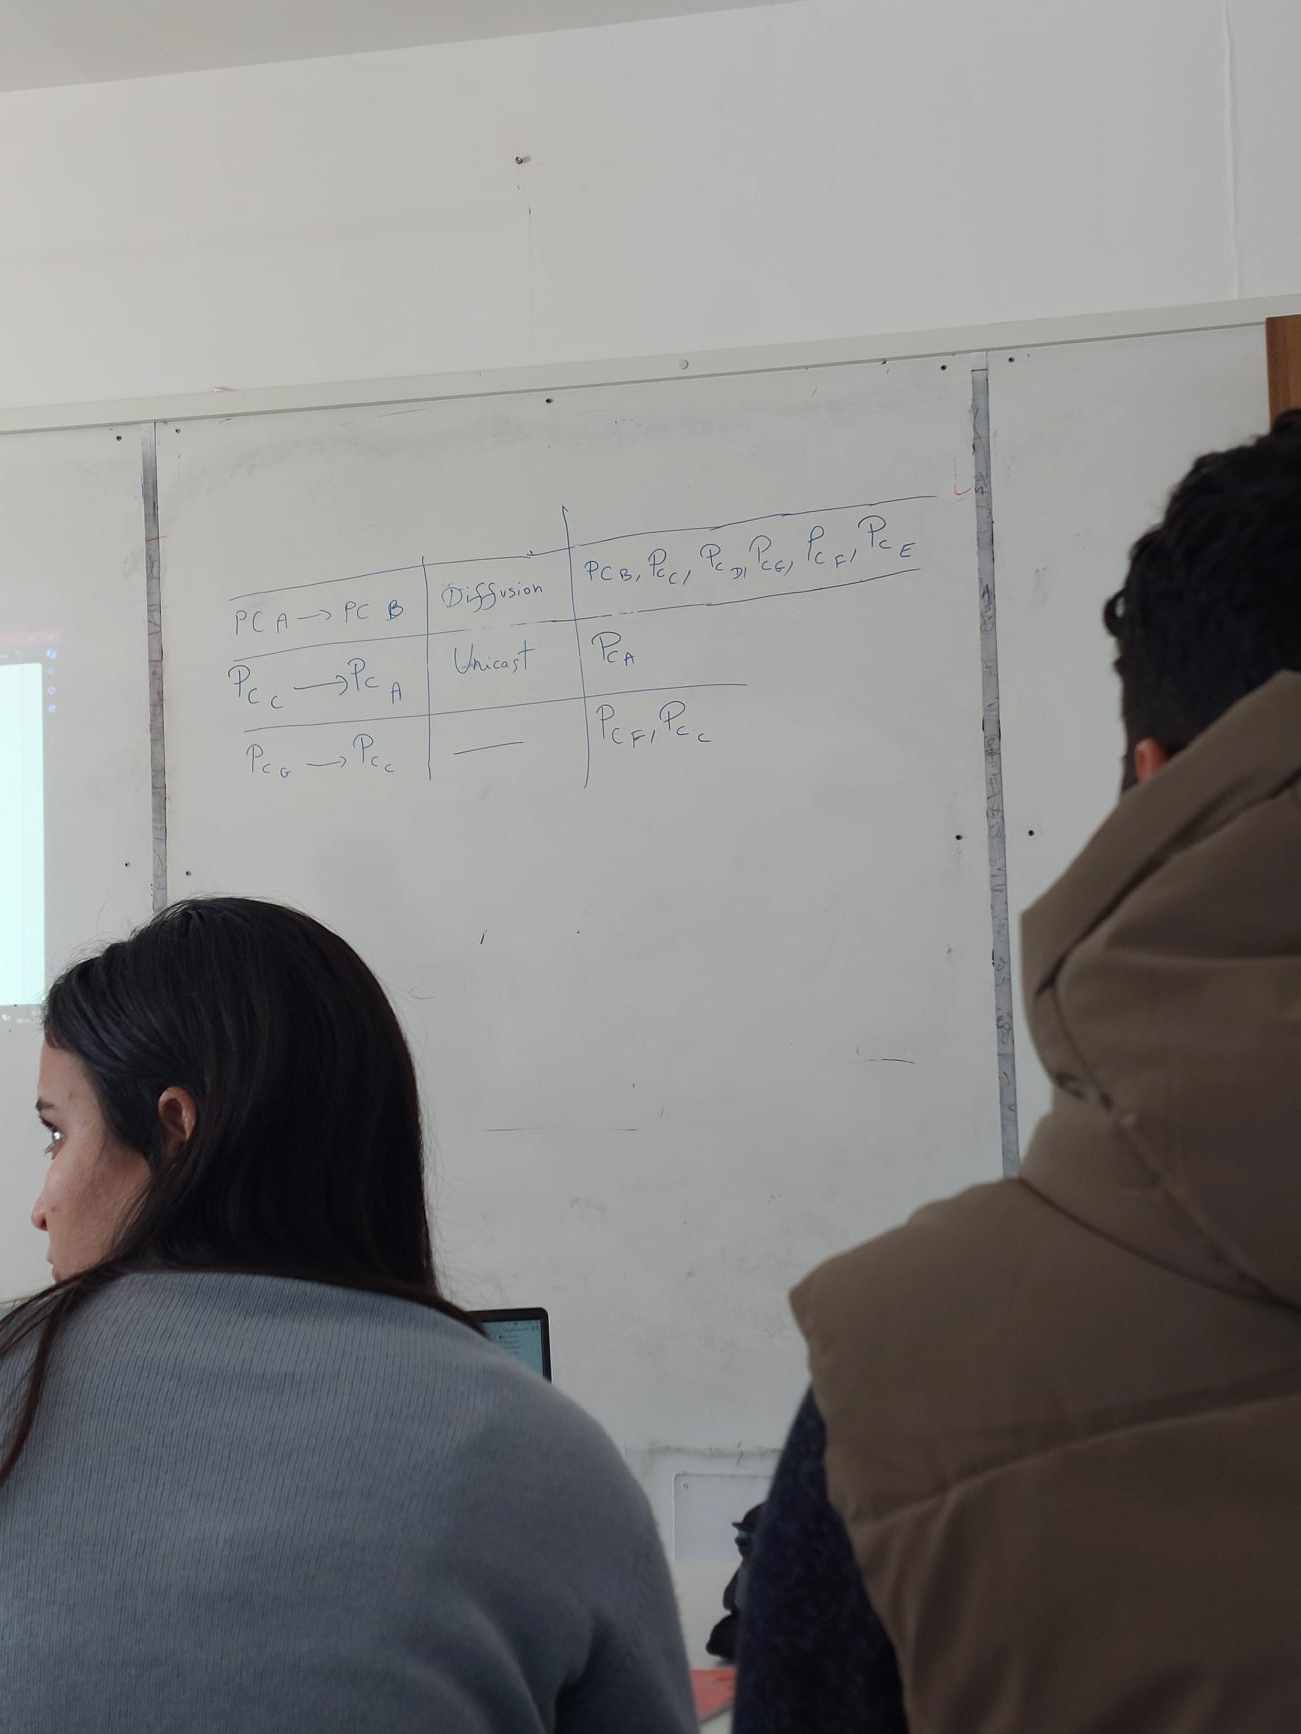 PC A → PC B Diffusion PC B, PC C, PC D, PC G, PC F, PC E
PC C → PC A Unicast PC A
PC G → PC C — PC F, PC C